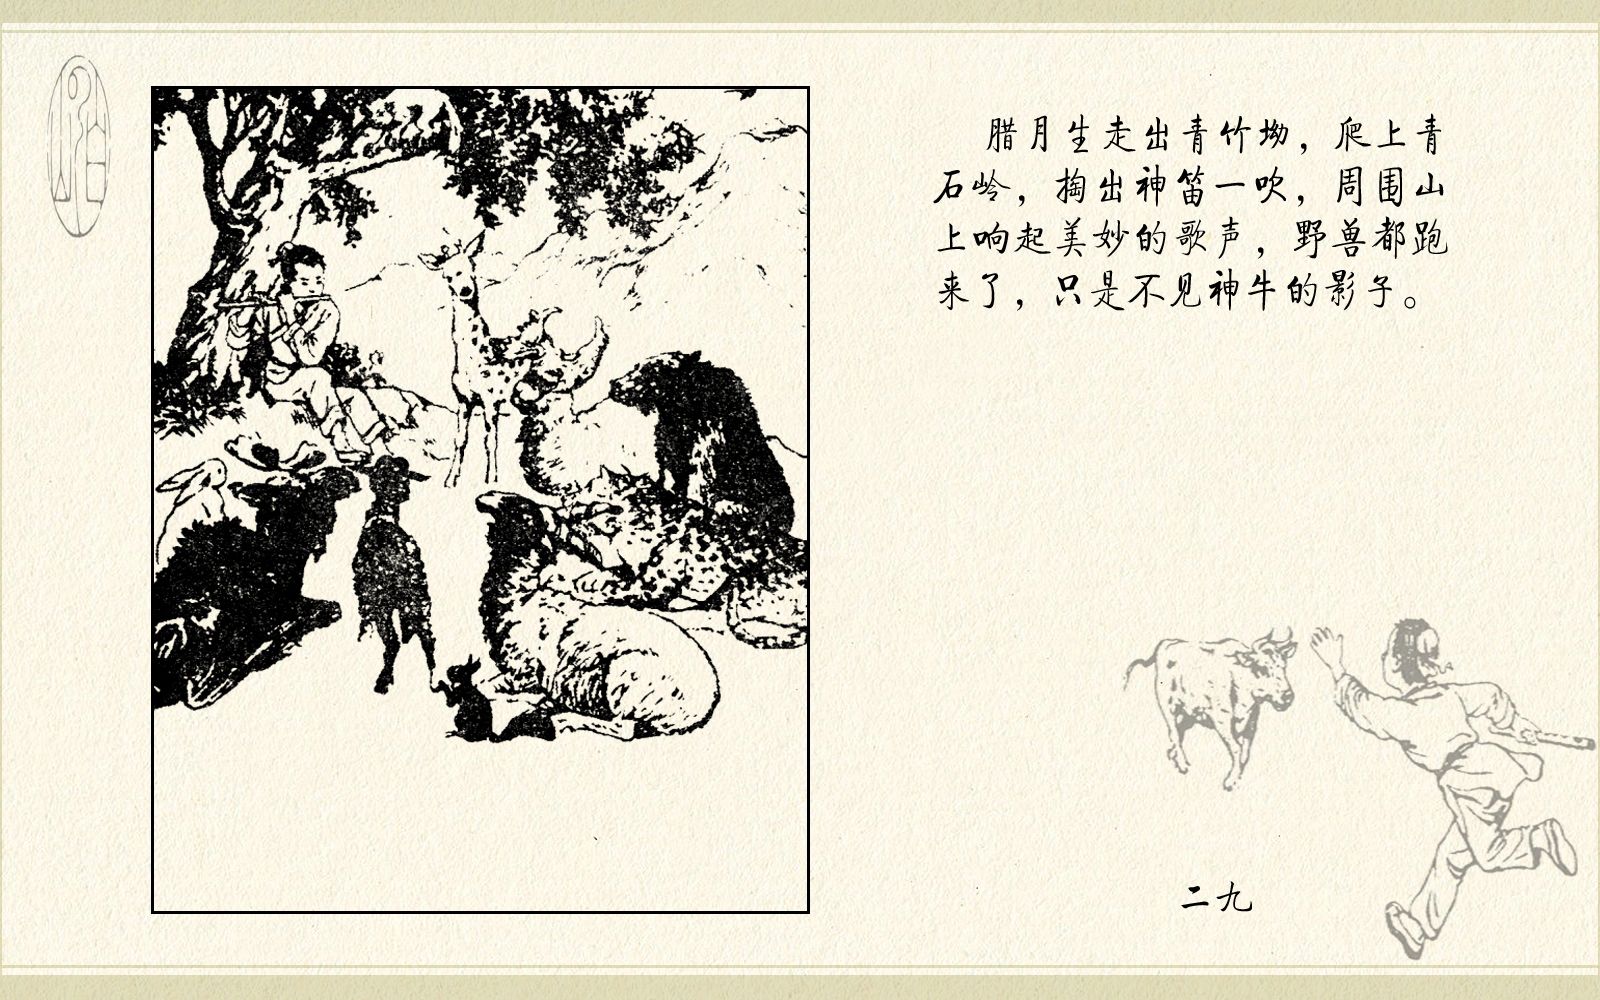 腊月生走出青竹坳，爬上青
石岭，掏出神笛一吹，周围山
上响起美妙的歌声，野兽都跑
来了，只是不见神牛的影子。
二九